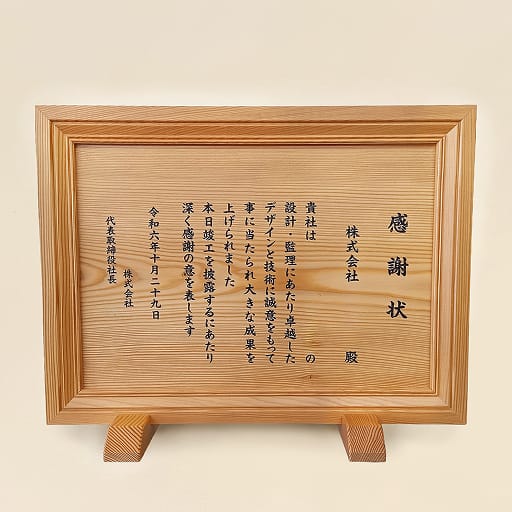 感謝状
株式会社 殿
貴社は の
設計・監理にあたり卓越した
デザインと技術に誠意をもって
事に当たられ大きな成果を
上げられました
本日竣工を披露するにあたり
深く感謝の意を表します
令和六年十月二十九日
株式会社
代表取締役社長